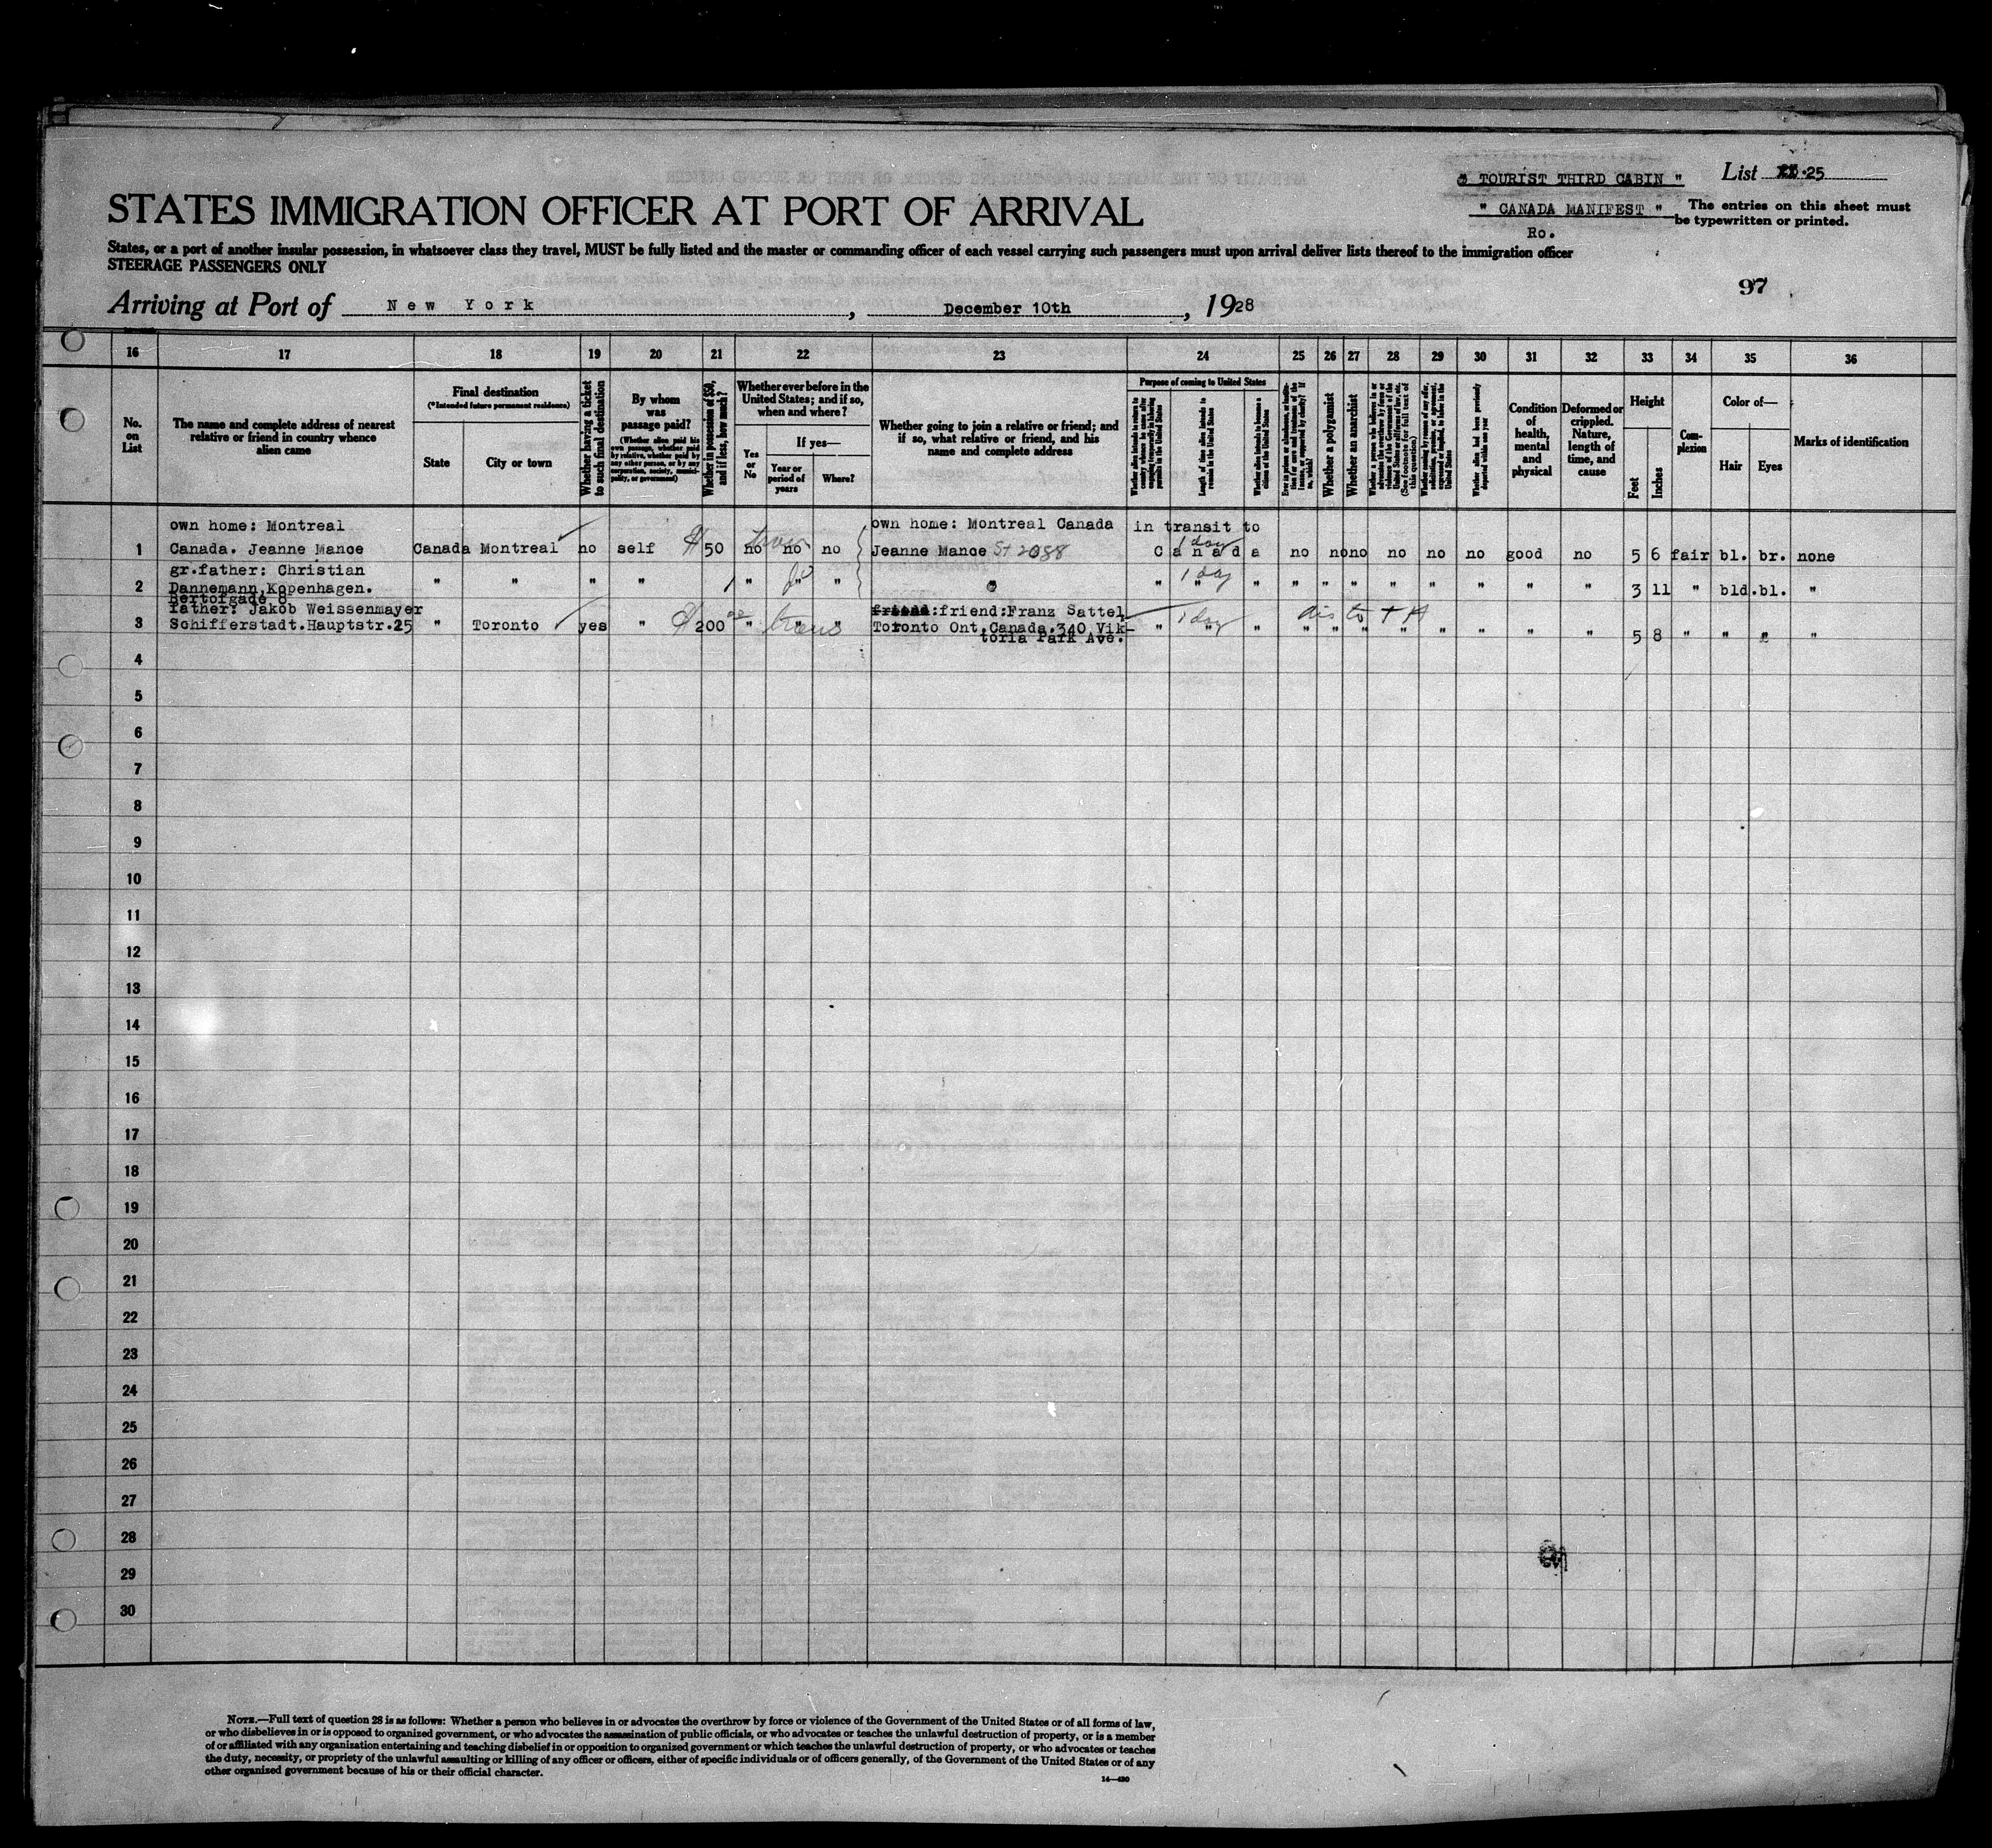 " TOURIST THIRD CABIN "
List 25
STATES IMMIGRATION OFFICER AT PORT OF ARRIVAL
" CANADA MANIFEST "
The entries on this sheet must
be typewritten or printed.
Ro.
States, or a port of another insular possession, in whatsoever class they travel, MUST be fully listed and the master or commanding officer of each vessel carrying such passengers must upon arrival deliver lists thereof to the immigration officer
STEERAGE PASSENGERS ONLY
97
Arriving at Port of New York, December 10th, 1928
16 17 18 19 20 21 22 23 24 25 26 27 28 29 30 31 32 33 34 35 36
No. on List
The name and complete address of nearest relative or friend in country whence alien came
Final destination
(*Intended future permanent residence)
State
City or town
Whether having a ticket to such final destination
By whom was passage paid?
(Whether alien paid his own passage, whether paid by relative, whether paid by any other person, or by any corporation, society, municipality, or government)
Whether in possession of $50, and if less, how much?
Whether ever before in the United States; and if so, when and where?
Yes or No
If yes—
Year or period of years
Where?
Whether going to join a relative or friend; and if so, what relative or friend, and his name and complete address
Purpose of coming to United States
Whether alien intends to return to country whence he came after engaging temporarily in laboring pursuits in the United States
Length of time alien intends to remain in the United States
Whether alien intends to become a citizen of the United States
Whether a polygamist
Whether an anarchist
Whether alien had been previously deported within one year
Condition of health, mental and physical
Deformed or crippled. Nature, length of time, and cause
Height
Feet
Inches
Complexion
Color of—
Hair
Eyes
Marks of identification
own home: Montreal own home: Montreal Canada in transit to
1 Canada. Jeanne Mance Canada Montreal no self $ 50 no no no Jeanne Mance St 2088 1 day Canada no no no no no no good no 5 6 fair bl. br. none
gr.father: Christian
2 Dannemann,Kopenhagen. " " " " " " " " 1 day " " " " " " " " " " 3 11 " bld. bl. "
Bertofgade 8
father: Jakob Weissenmayer friend:friend:Franz Sattel
3 Schifferstadt.Hauptstr.25 " Toronto yes " $ 200 " trans " " Toronto Ont.Canada.340 Vik- " 1 day " " " " " " " " " " 5 8 " " " "
toria Park Ave.
4
5
6
7
8
9
10
11
12
13
14
15
16
17
18
19
20
21
22
23
24
25
26
27
28
29
30
NOTE.—Full text of question 28 is as follows: Whether a person who believes in or advocates the overthrow by force or violence of the Government of the United States or of all forms of law,
or who disbelieves in or is opposed to organized government, or who advocates the assassination of public officials, or who advocates or teaches the unlawful destruction of property, or is a member
of or affiliated with any organization entertaining and teaching disbelief in or opposition to organized government or which teaches the unlawful destruction of property, or who advocates or teaches
the duty, necessity, or propriety of the unlawful assaulting or killing of any officer or officers, either of specific individuals or of officers generally, of the Government of the United States or of any
other organized government because of his or their official character.
14—430